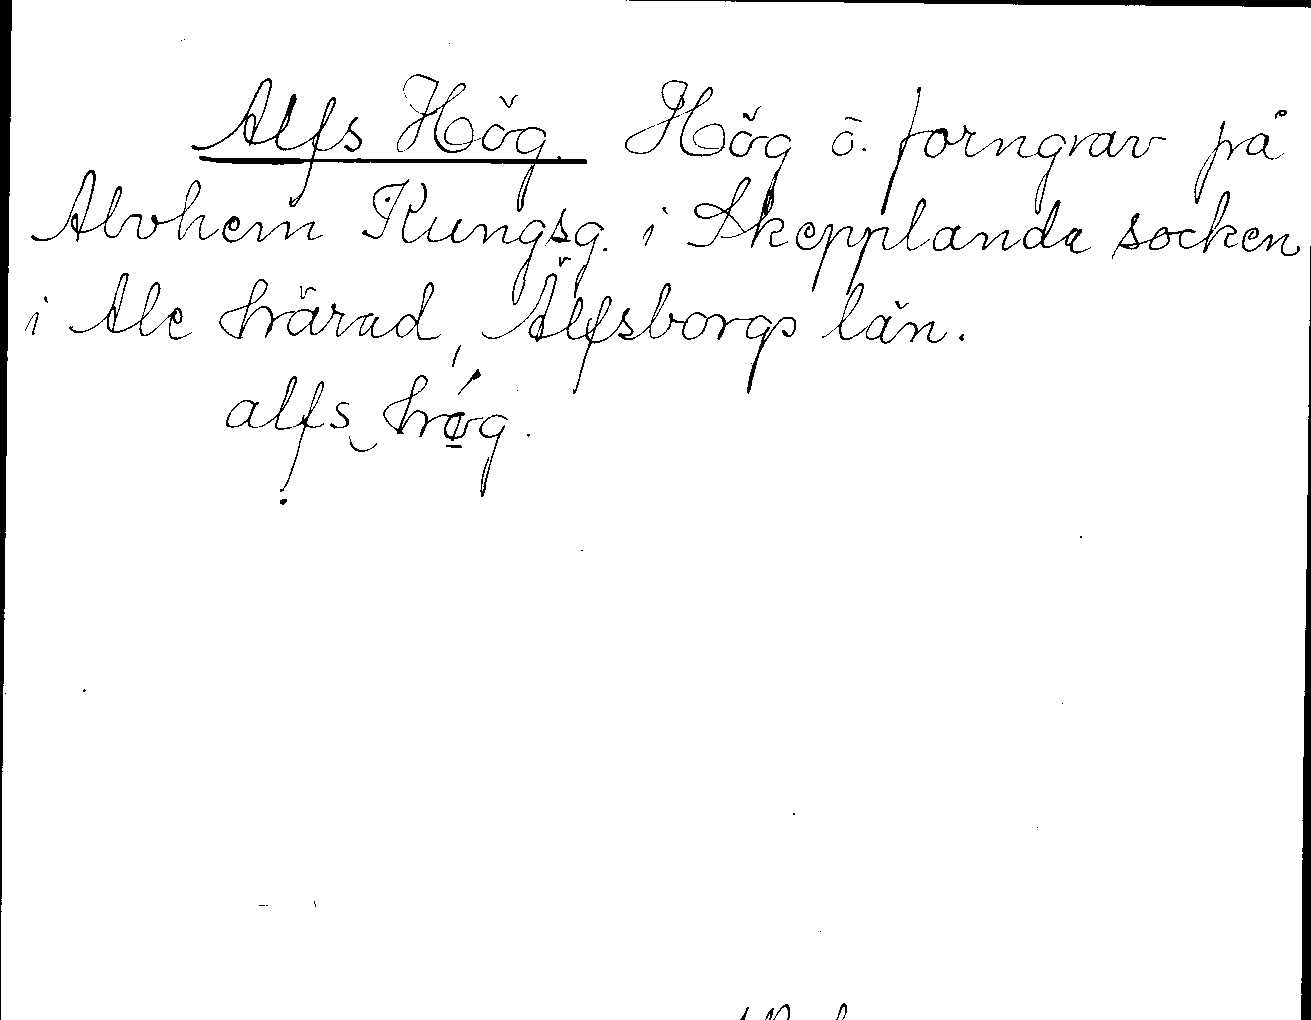 Alfs Hög. Hög o. forngrav på
Alvhem Kungsg. i Skepplanda socken
i Ale härad, Älfsborgs län.
alfs høg.